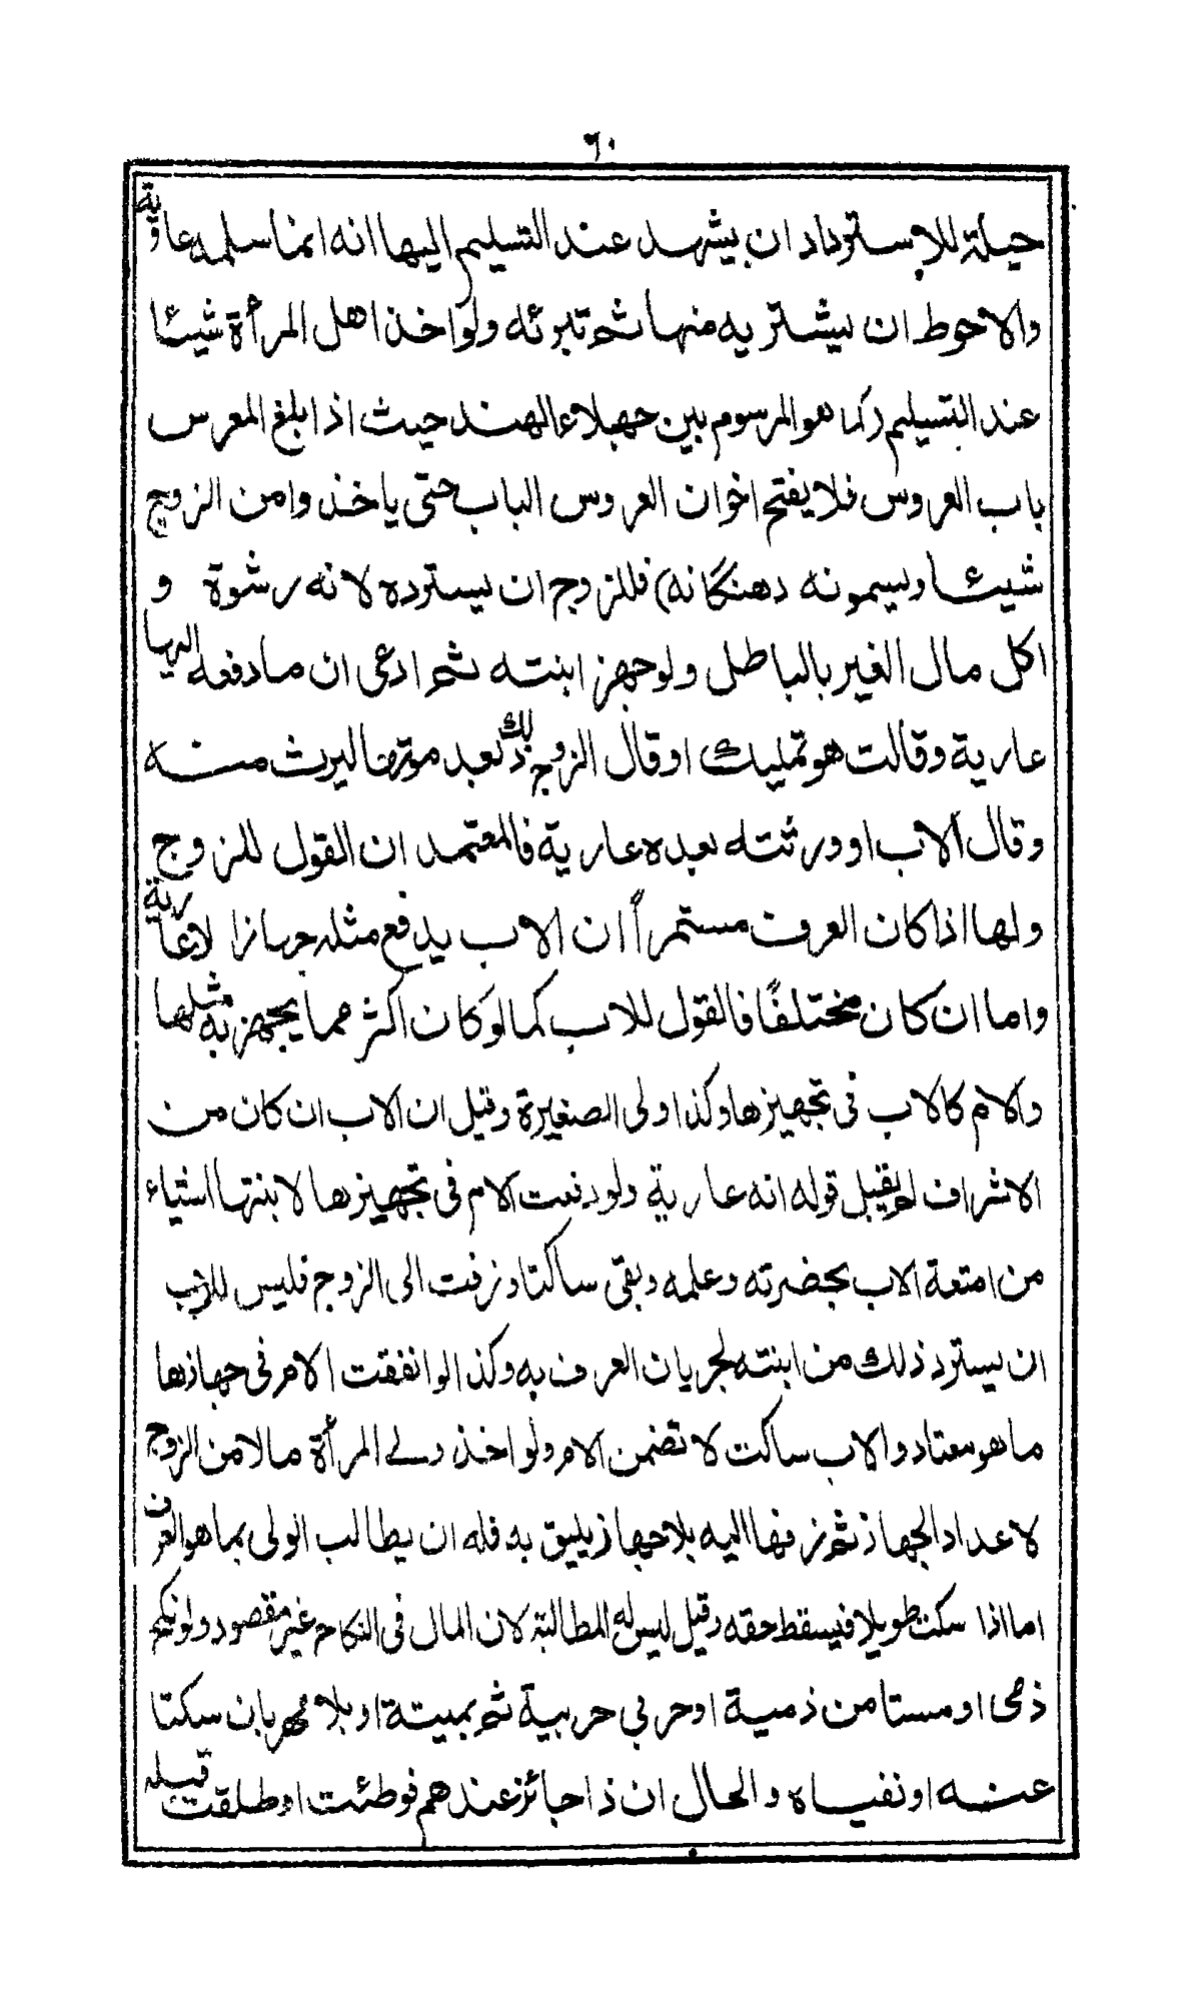 ٦٠
حيلة للاسترداد ان يشهد عند التسليم اليها انه انما سلمه عارية
والاحوط ان يشتريه منها ثم تبرئه ولو اخذ اهل المرأة شيئا
عند التسليم (كما هو المرسوم بين جهلاء الهند حيث اذا بلغ المعرس
باب العروس فلا يفتح اخوان العروس الباب حتى ياخذوا من الزوج
شيئا ويسمونه دهنگانه) فللزوج ان يسترده لانه رشوة و
اكل مال الغير بالباطل ولو جهز ابنته ثم ادعى ان ما دفعه اليها
عارية وقالت هو تمليك او قال الزوج ذلك بعد موتها ليرث منه
وقال الاب او ورثته بعده عارية فالمعتمد ان القول للزوج
ولها اذا كان العرف مستمراً ان الاب يدفع مثله جهازا لا عارية
واما ان كان مختلفًا فالقول للاب كما لو كان اكثر مما يجهز به مثلها
والام كالاب فى تجهيزها وكذا ولى الصغيرة وقيل ان الاب ان كان من
الاشراف لم يقبل قوله انه عارية ولو دفعت الام فى تجهيزها لابنتها اشياء
من امتعة الاب بحضرته وعلمه وبقى ساكتا وزفت الى الزوج فليس للاب
ان يسترد ذلك من ابنته لجريان العرف به وكذا لو انفقت الام فى جهازها
ما هو معتاد والاب ساكت لا تضمن الام ولو اخذ ولے المرأة مالا من الزوج
لاعداد الجهاز ثم زفها اليه بلا جهاز يليق به فله ان يطالب الولى بما هو العرف
اما اذا سكت طويلا فيسقط حقه وقيل ليس له المطالبة لان المال فى النكاح غير مقصود ولو نكح
ذمى او مستامن ذمية او حربي حربية ثم بميتة او بلا مهر بان سكتا
عنه او نفياه والحال ان ذا جائز عندهم فوطئت او طلقت قبله